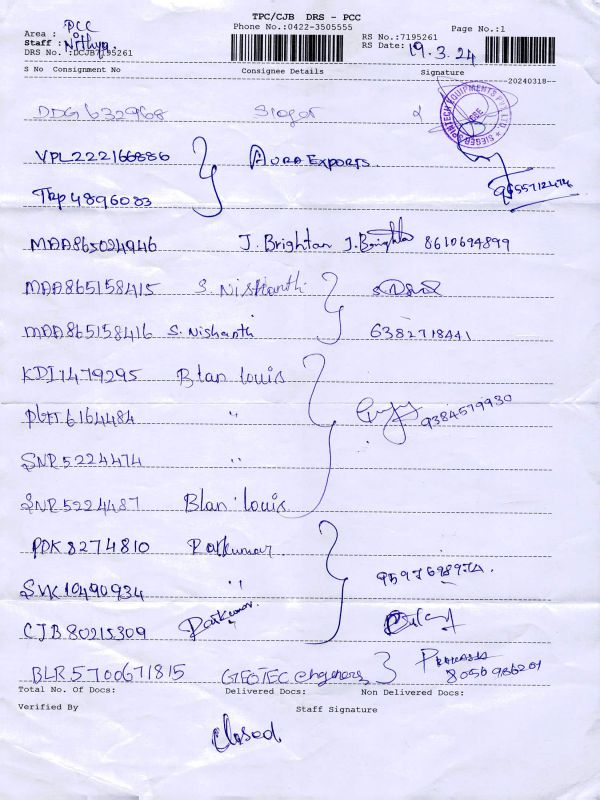 TPC/CJB DRS - PCC
Phone No.:0422-3505555
Page No.:1
Area : PCC
Staff : Nithya.
DRS No.:DCJB7195261
RS No.:7195261
RS Date: 19.3.24
S No Consignment No Consignee Details Signature
20240318
DDG632968 Sieger
SIEGER SPINTECH EQUIPMENTS PVT LTD
VPL222166886 Aura Exports
Tkp4896083
MAA865024946 J. Brightan J. Brightan 8610694899
MAA865158415 S. Nishanth
MAA865158416 S. Nishanth 6382718441
KDI1479295 Blan louis
PGT6164484 " 9384579930
SNR5224474 "
SNR5224487 Blan louis
PDK8274810 Ratkumar
SVK10490934 "
CJB80215309 Ratkumar.
BLR5700671815 GEOTEC engineers Prakash
8056986201
Total No. Of Docs: Delivered Docs: Non Delivered Docs:
Verified By Staff Signature
closed